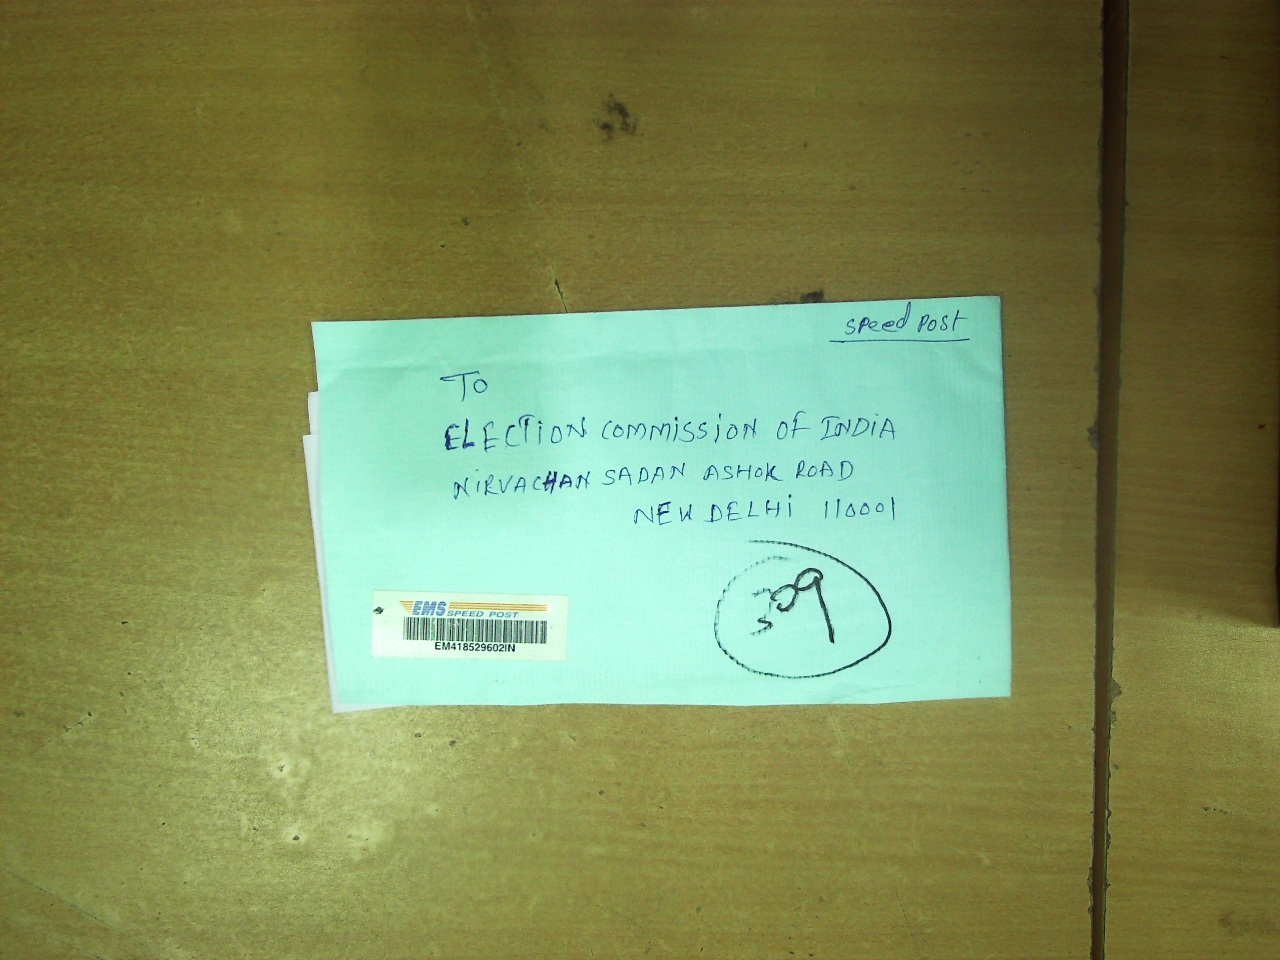 speed post
To
ELECTION COMMISSION OF INDIA
NIRVACHAN SADAN ASHOK ROAD
NEW DELHI 110001
EMS
SPEED POST
EM418529602IN